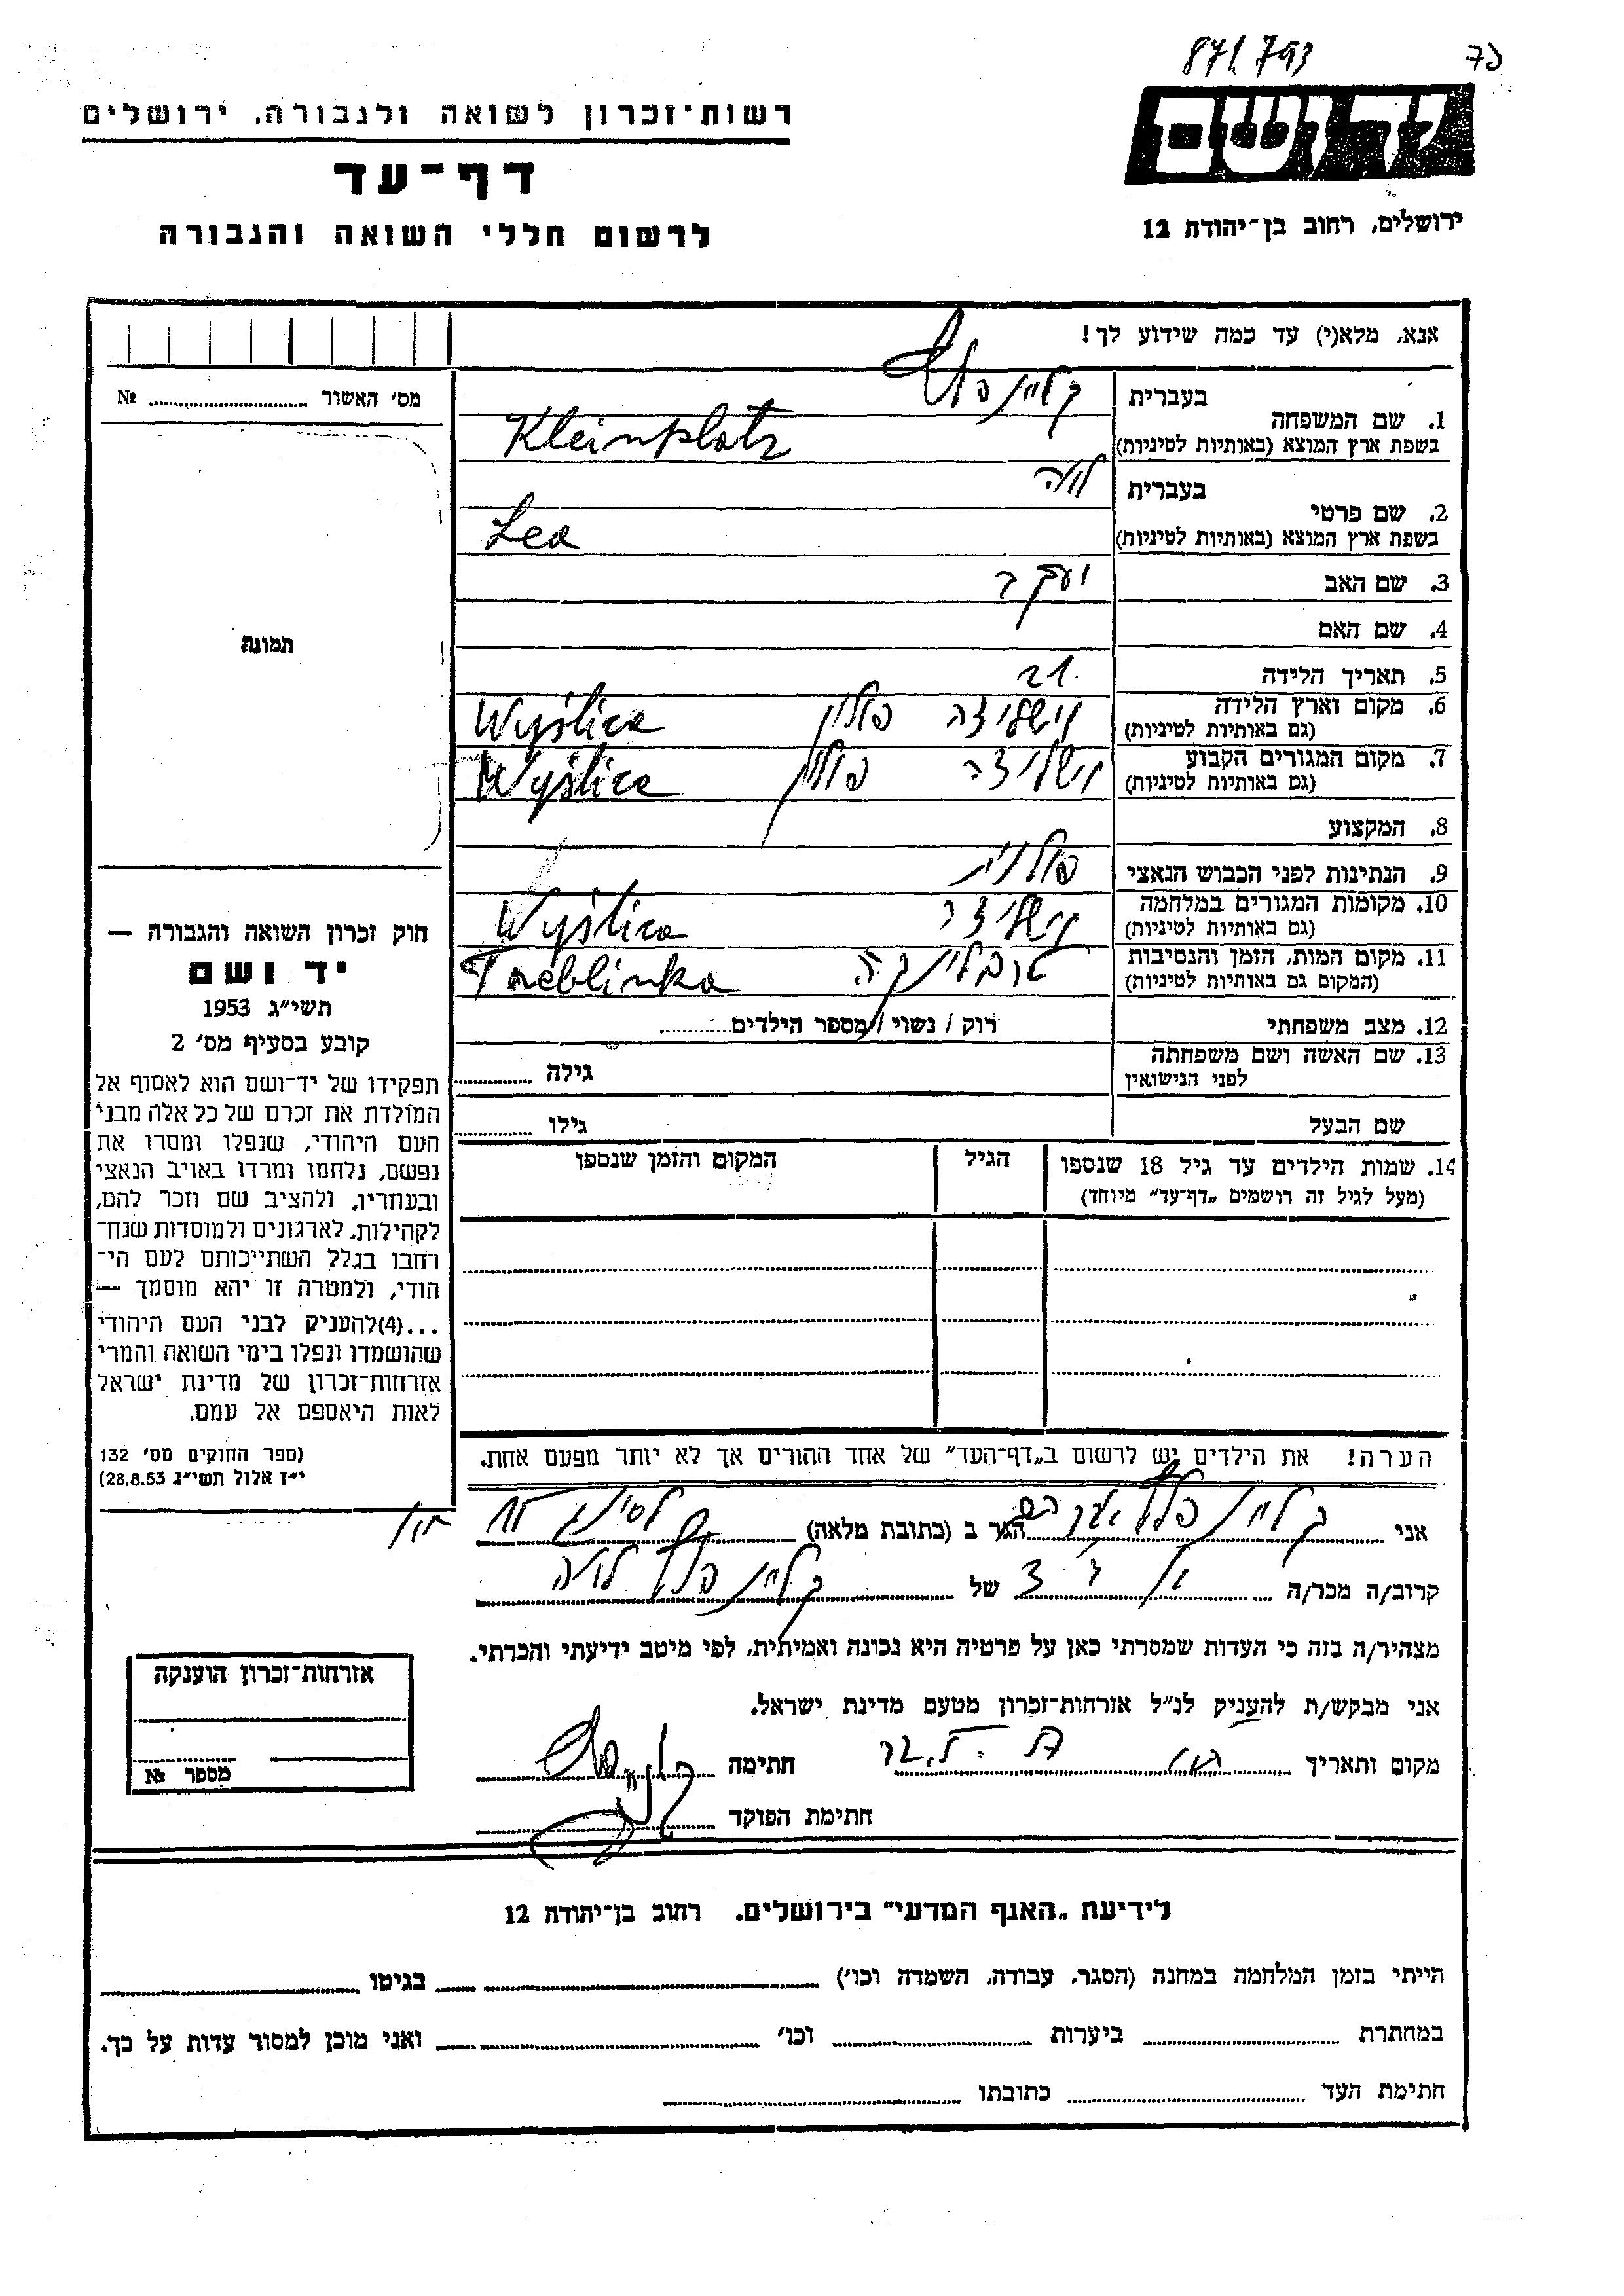 871.793
יד ושם
ירושלים, רחוב בן־יהודה 12
רשות־זכרון לשואה ולגבורה, ירושלים
דף־עד
לרשום חללי השואה והגבורה
אנא, מלא(י) עד כמה שידוע לך!
מס׳ האשור ............ №
תמונה
1. שם המשפחה
בעברית
בשפת ארץ המוצא (באותיות לטיניות) Kleinplatz
2. שם פרטי
בעברית לאה
בשפת ארץ המוצא (באותיות לטיניות) Lea
3. שם האב יעקב
4. שם האם
5. תאריך הלידה 21
6. מקום וארץ הלידה וישליצה פולין Wyślica
(גם באותיות לטיניות)
7. מקום המגורים הקבוע וישליצה פולין Wyślica
(גם באותיות לטיניות)
8. המקצוע
9. הנתינות לפני הכבוש הנאצי פולנית
10. מקומות המגורים במלחמה וישליצה Wyślica
(גם באותיות לטיניות)
11. מקום המות, הזמן והנסיבות טרבלינקה Treblinka
(המקום גם באותיות לטיניות)
12. מצב משפחתי רווק / נשוי / מספר הילדים............
13. שם האשה ושם משפחתה גילה ............
לפני הנישואין
שם הבעל גילו ............
14. שמות הילדים עד גיל 18 שנספו הגיל המקום והזמן שנספו
(מעל לגיל זה רושמים „דף־עד״ מיוחד)
הערה! את הילדים יש לרשום ב„דף־העד״ של אחד ההורים אך לא יותר מפעם אחת.
חוק זכרון השואה והגבורה —
יד ושם
תשי״ג 1953
קובע בסעיף מס׳ 2
תפקידו של יד־ושם הוא לאסוף אל
המולדת את זכרם של כל אלה מבני
העם היהודי, שנפלו ומסרו את
נפשם, נלחמו ומרדו באויב הנאצי
ובעוזריו, ולהציב שם וזכר להם,
לקהילות, לארגונים ולמוסדות שנח־
רחבו בגלל השתייכותם לעם הי־
הודי, ולמטרה זו יהא מוסמך —
...(4)להעניק לבני העם היהודי
שהושמדו ונפלו בימי השואה והמרי
אזרחות־זכרון של מדינת ישראל
לאות היאספם אל עמם.
(ספר החוקים מס׳ 132
י״ז אלול תשי״ג 28.8.53)
אני קליינפלץ הגר ב (כתובת מלאה) חולון
קרוב/ה מכר/ה של קליינפלץ לאה
מצהיר/ה בזה כי העדות שמסרתי כאן על פרטיה היא נכונה ואמיתית, לפי מיטב ידיעתי והכרתי.
אני מבקש/ת להעניק לנ״ל אזרחות־זכרון מטעם מדינת ישראל.
מקום ותאריך חתימה
חתימת הפוקד
אזרחות־זכרון הוענקה
מספר №
לידיעת „האגף המדעי״ בירושלים. רחוב בן־יהודה 12
הייתי בזמן המלחמה במחנה (הסגר, עבודה, השמדה וכו׳) בגיטו
במחתרת ביערות וכו׳ ואני מוכן למסור עדות על כך.
חתימת העד כתובתו